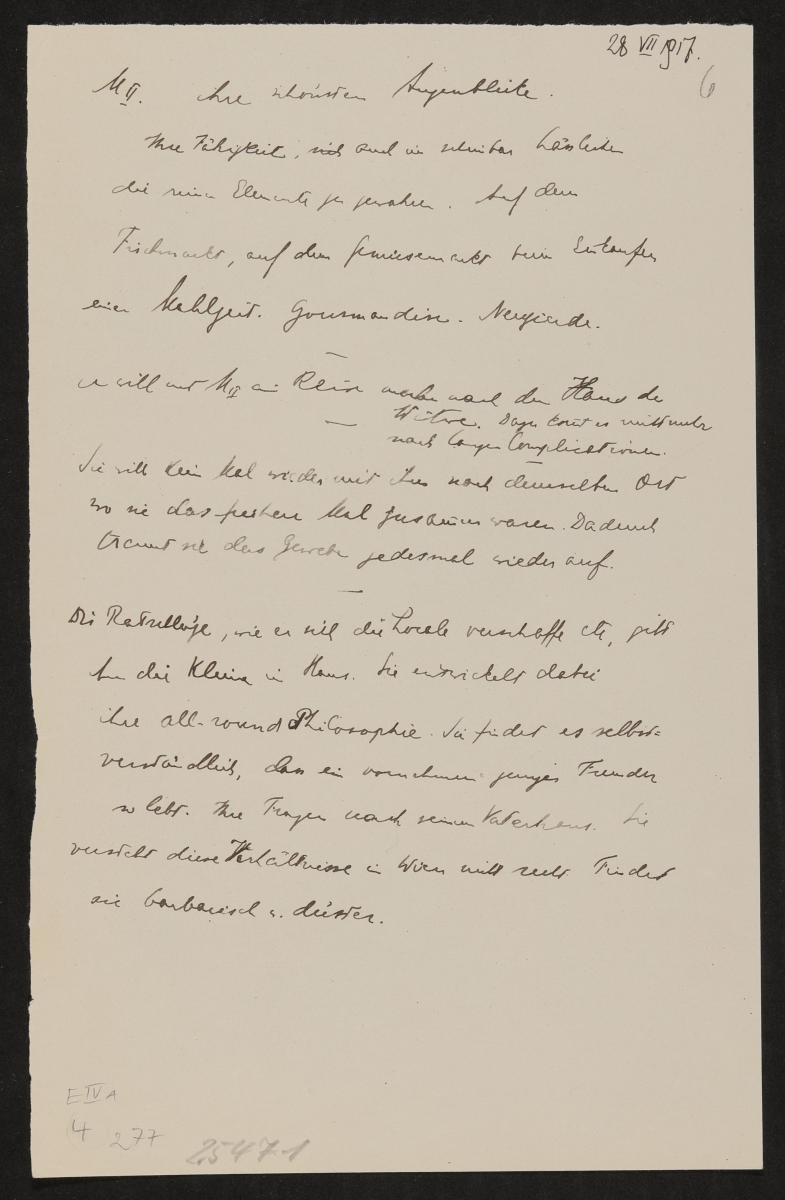 28 VII 1917.
6
M II. ihre schönsten Augenblicke.
Ihre Fähigkeit, sich auch in scheinbar Hässlichen
die reinen Elemente zu gewahren. Auf dem
Fischmarkt, auf dem Gemüsemarkt beim Einkaufen
einer Mahlzeit. Gourmandise. Neugierde.
er will mit M II eine Reise machen nach dem Haus der
Witwe. Dazu kommt es nicht mehr
nach langen Complicationen.
Sie will kein Mal wieder mit ihm nach demselben Ort
wo sie das frühere Mal zusammen waren. Dadurch
trennt sie das Gewebe jedesmal wieder auf.
Die Ratschläge, wie er sich die Locale verschaffe etc, gibt
ihm die Kleine im Haus. Sie entwickelt dabei
ihre all-round Philosophie. Sie findet es selbst-
verständlich, dass ein vornehmer junger Fremder
so lebt. Ihre Fragen nach seinem Vaterhaus. Sie
versteht diese Verhältnisse in Wien nicht recht. Findet
sie barbarisch u. düster.
E IV A
4 277
2547-1